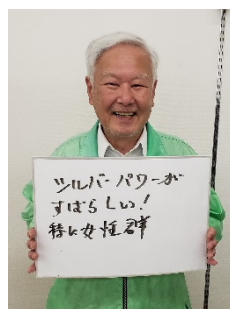 シルバーパワーが
すばらしい!
特に女性群